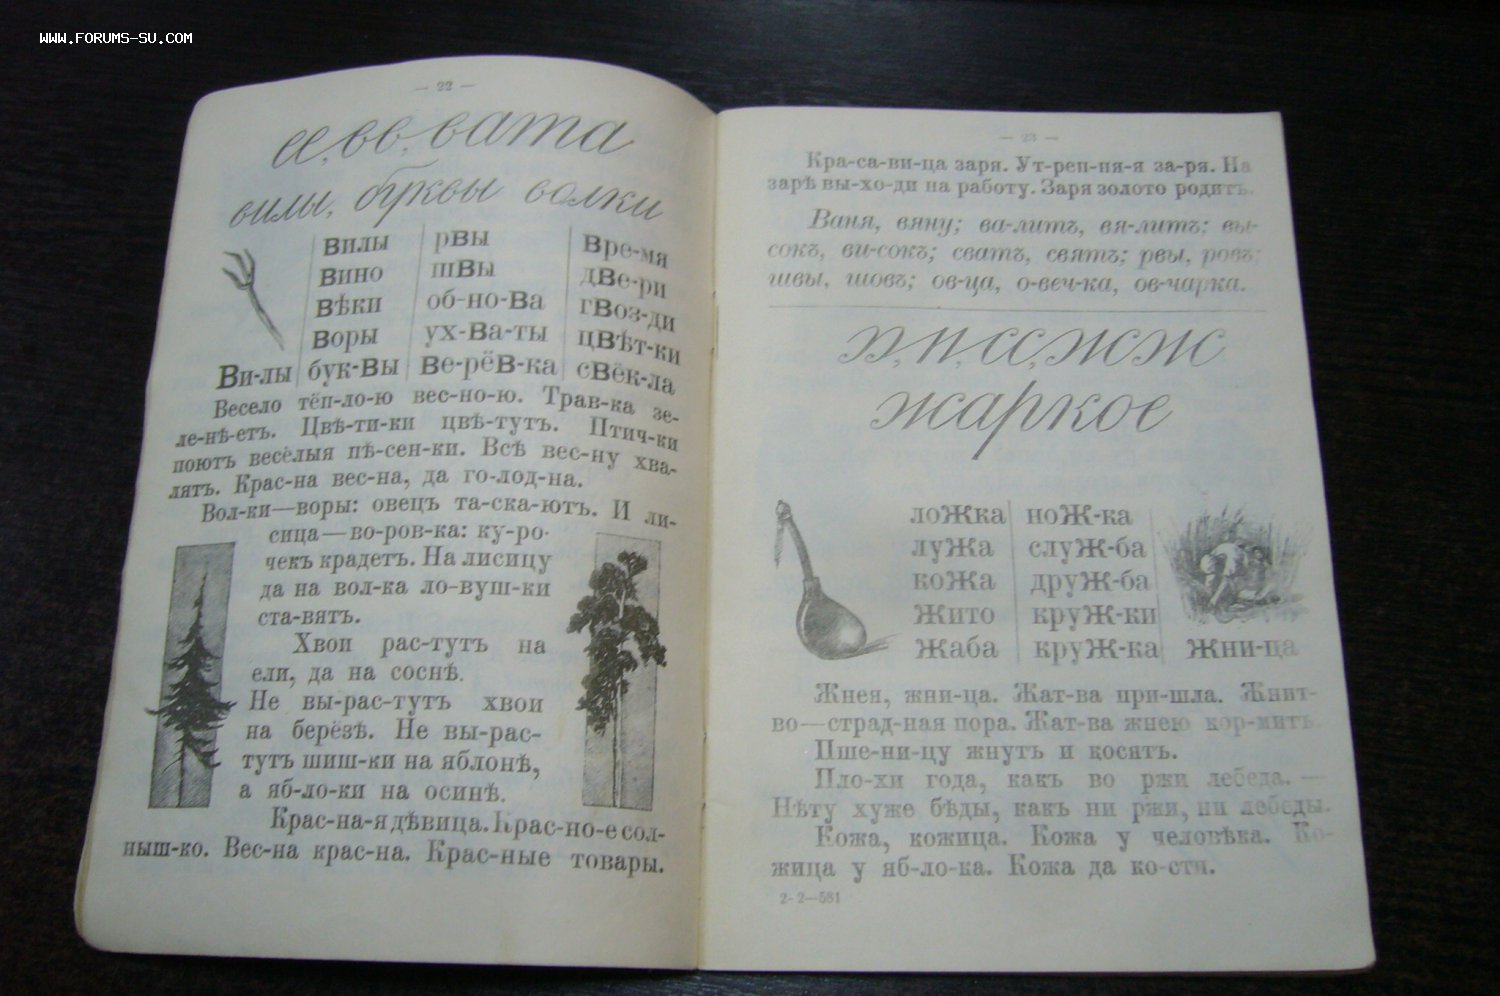 WWW.FORUMS-SU.COM
— 22 —
вв, вата
вилы, буквы волки
вилы рвы вре-мя
вино швы две-ри
вѣки об-но-ва гвоз-ди
воры ух-ва-ты цвѣт-ки
Ви-лы бук-вы ве-рёв-ка свёк-ла
Весело тёп-ло-ю вес-но-ю. Трав-ка зе-
ле-нѣ-етъ. Цвѣ-ти-ки цвѣ-тутъ. Птич-ки
поютъ весёлыя пѣ-сен-ки. Всѣ вес-ну хва-
лятъ. Крас-на вес-на, да го-лод-на.
Вол-ки—воры: овецъ та-ска-ютъ. И ли-
сица—во-ров-ка: ку-ро-
чекъ крадетъ. На лисицу
да на вол-ка ло-вуш-ки
ста-вятъ.
Хвои рас-тутъ на
ели, да на соснѣ.
Не вы-рас-тутъ хвои
на берёзѣ. Не вы-рас-
тутъ шиш-ки на яблонѣ,
а яб-ло-ки на осинѣ.
Крас-на-я дѣвица. Крас-но-е сол-
ныш-ко. Вес-на крас-на. Крас-ные товары.
— 23 —
Кра-са-ви-ца заря. Ут-рен-ня-я за-ря. На
зарѣ вы-хо-ди на работу. Заря золото родитъ.
Ваня, вяну; ва-литъ, вя-литъ; вы-
сокъ, ви-сокъ; сватъ, святъ; рвы, ровъ;
швы, шовъ; ов-ца, о-веч-ка, ов-чарка.
жж
жаркое
ложка нож-ка
лужа служ-ба
кожа друж-ба
жито круж-ки
жаба круж-ка жни-ца
Жнея, жни-ца. Жат-ва при-шла. Жнит-
во—страд-ная пора. Жат-ва жнею кор-митъ.
Пше-ни-цу жнутъ и косятъ.
Пло-хи года, какъ во ржи лебеда. —
Нѣту хуже бѣды, какъ ни ржи, ни лебеды.
Кожа, кожица. Кожа у человѣка. Ко-
жица у яб-ло-ка. Кожа да ко-сти.
2-2—581